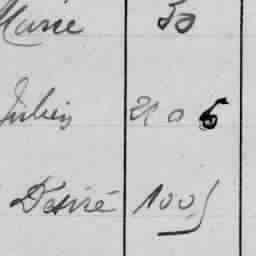 Marie 50
Julien
Désiré 1005